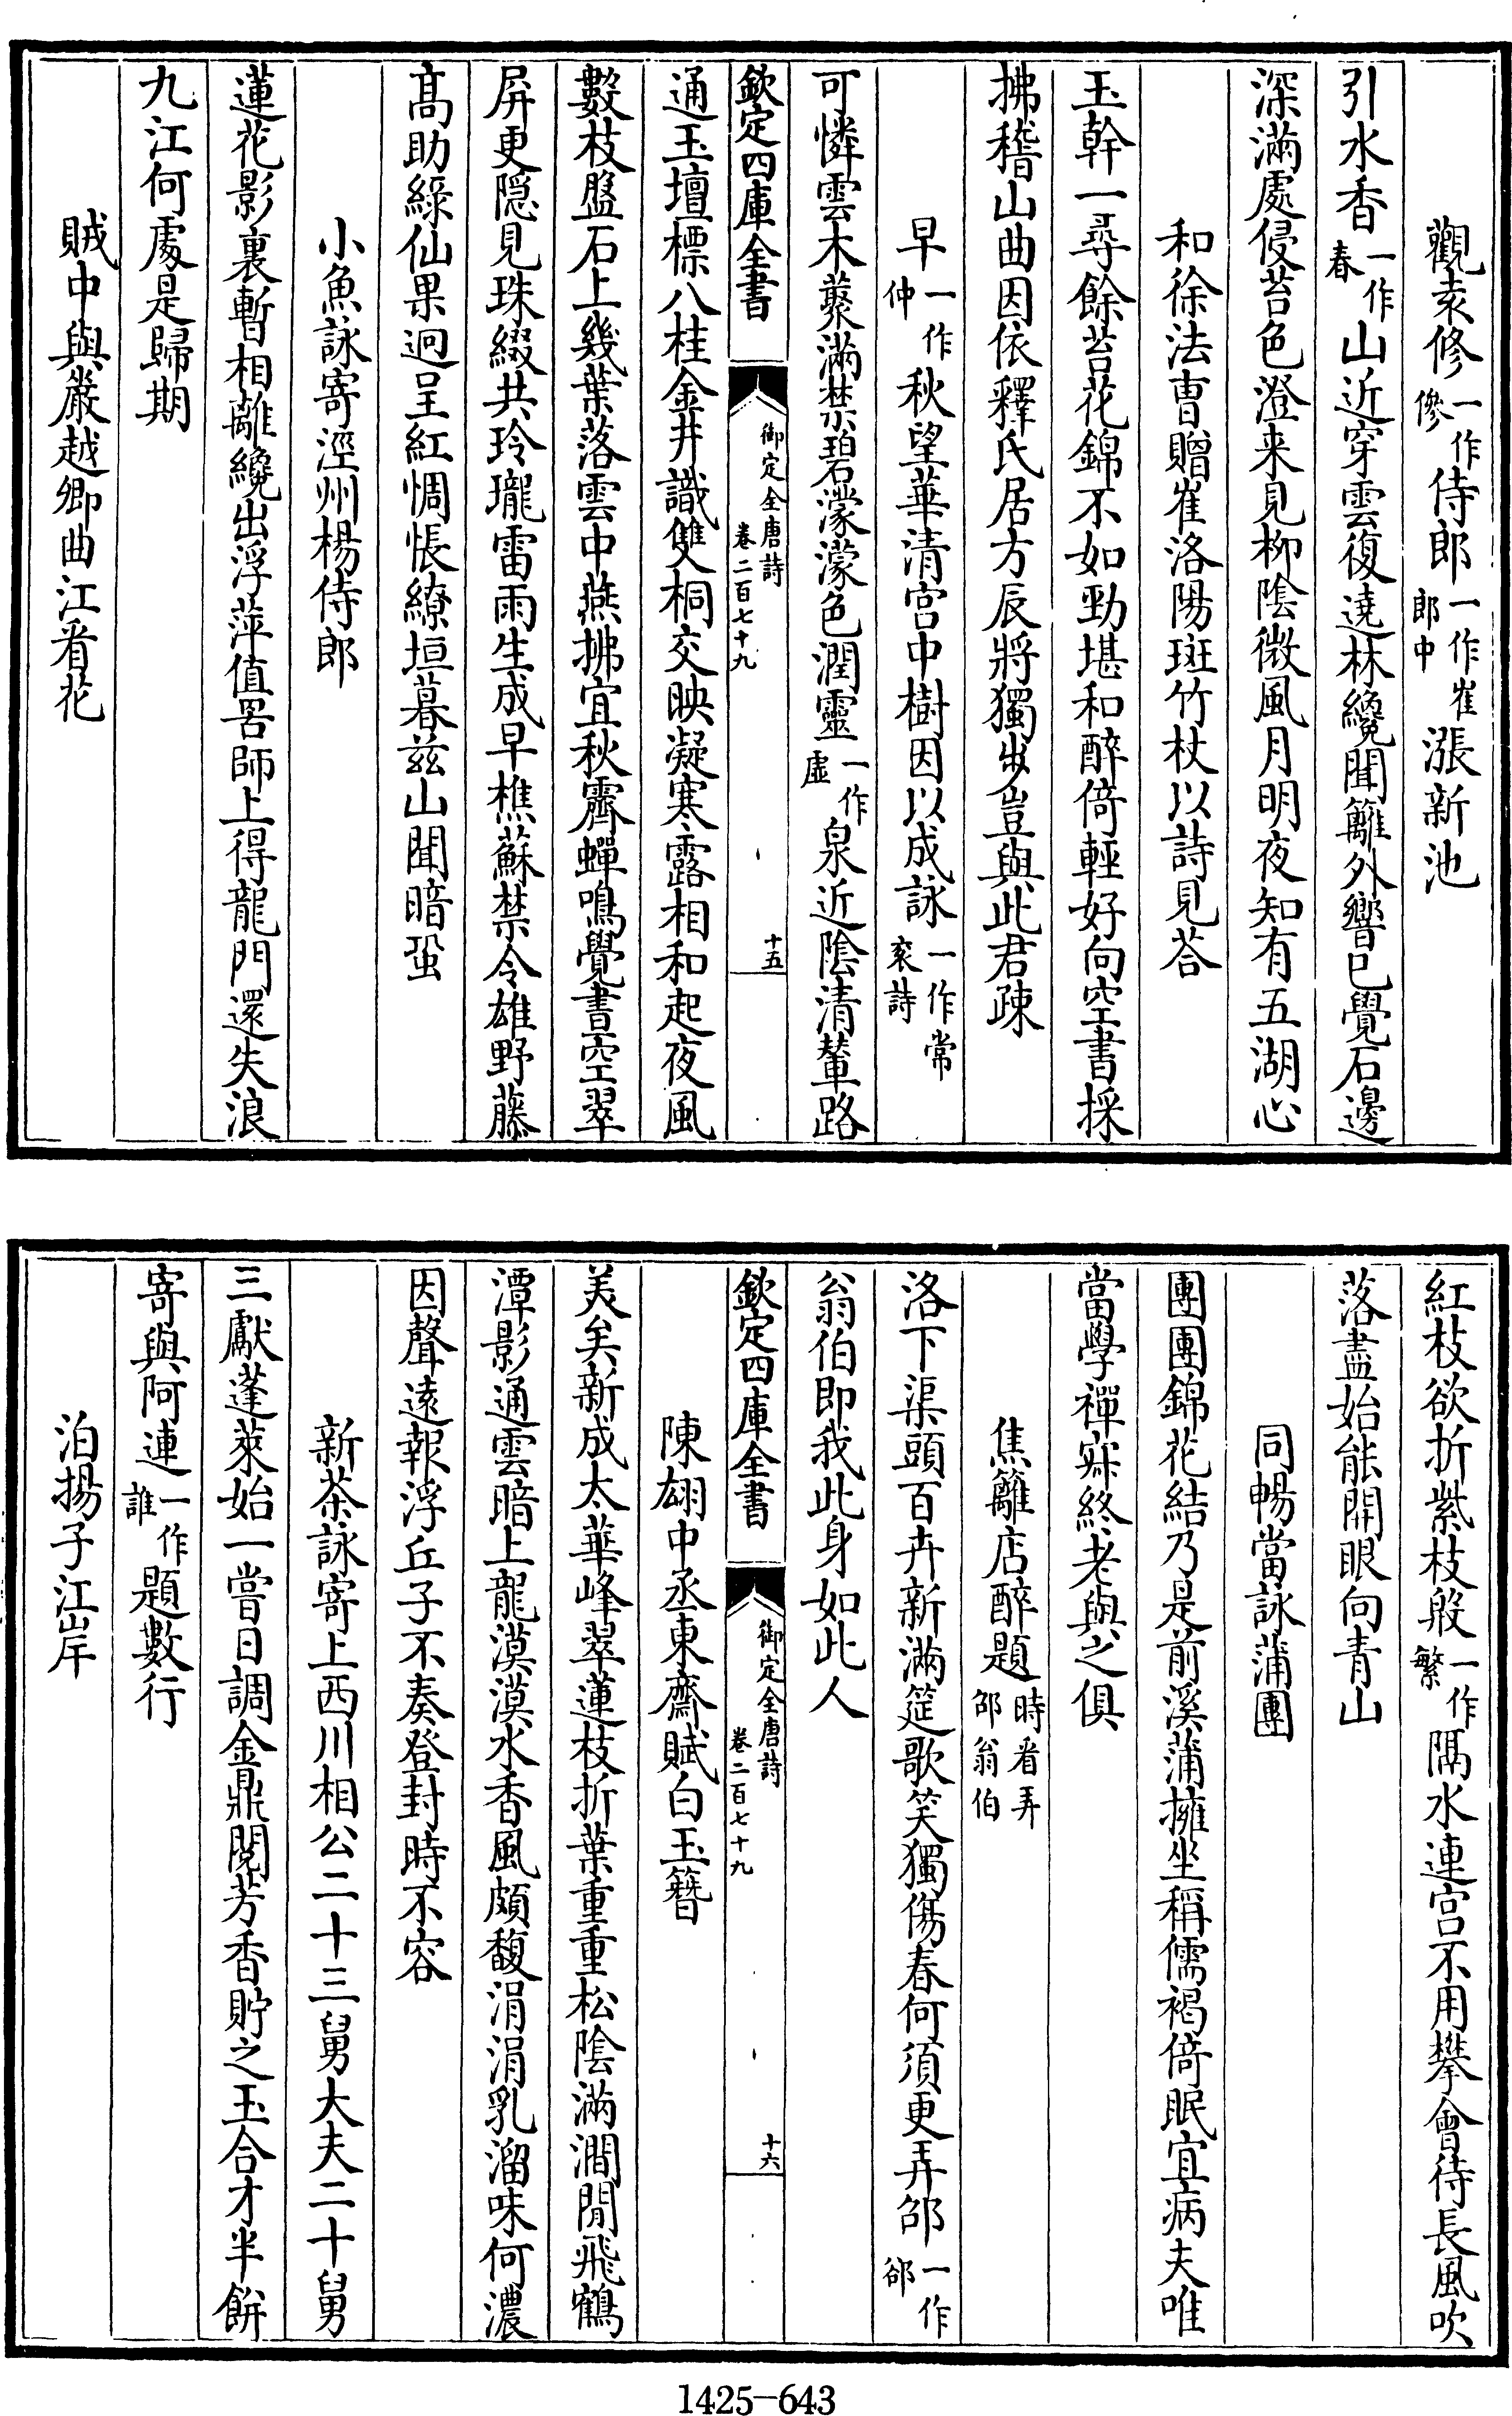 觀袁修一作傪侍郎一作崔郎中漲新池
引水香一作春山近穿雲復遶林纔聞籬外響已覺石邊
深滿處侵苔色澄来見柳陰微風月明夜知有五湖心
和徐法曹贈崔洛陽斑竹杖以詩見荅
玉幹一尋餘苔花錦不如勁堪和醉倚輕好向空書採
拂稽山曲因依釋氏居方辰將獨步豈與此君疎
早一作仲秋望華清宫中樹因以成詠一作常衮詩
可憐雲木藂滿禁碧濛濛色潤靈一作虛泉近陰清輦路
欽定四庫全書
御定全唐詩
卷二百七十九
十五
通玉壇標八桂金井識雙桐交映凝寒露相和起夜風
數枝盤石上幾葉落雲中燕拂宜秋霽蟬鳴覺晝空翠
屏更隱見珠綴共玲瓏雷雨生成早樵蘇禁令雄野藤
髙助綠仙果迥呈紅惆悵繚垣暮兹山聞暗蛩
小魚詠寄涇州楊侍郎
蓮花影裏暫相離纔出浮萍值罟師上得龍門還失浪
九江何處是歸期
賊中與嚴越卿曲江看花
紅枝欲折紫枝殷一作繁隔水連宫不用攀會待長風吹
落盡始能開眼向青山
同暢當詠蒲團
團團錦花結乃是前溪蒲擁坐稱儒褐倚眠宜病夫唯
當學禪寂終老與之俱
焦籬店醉題時看弄邵翁伯
洛下渠頭百卉新滿筵歌笑獨傷春何須更弄邵一作郤
翁伯即我此身如此人
欽定四庫全書
御定全唐詩
卷二百七十九
十六
陳翃中丞東齋賦白玉簪
美矣新成太華峰翠蓮枝折葉重重松陰滿澗閒飛鶴
潭影通雲暗上龍漠漠水香風頗馥涓涓乳溜味何濃
因聲逺報浮丘子不奏登封時不容
新茶詠寄上西川相公二十三舅大夫二十舅
三獻蓬萊始一嘗日調金鼎閱芳香貯之玉合才半餅
寄與阿連一作誰題數行
泊揚子江岸
1425-643